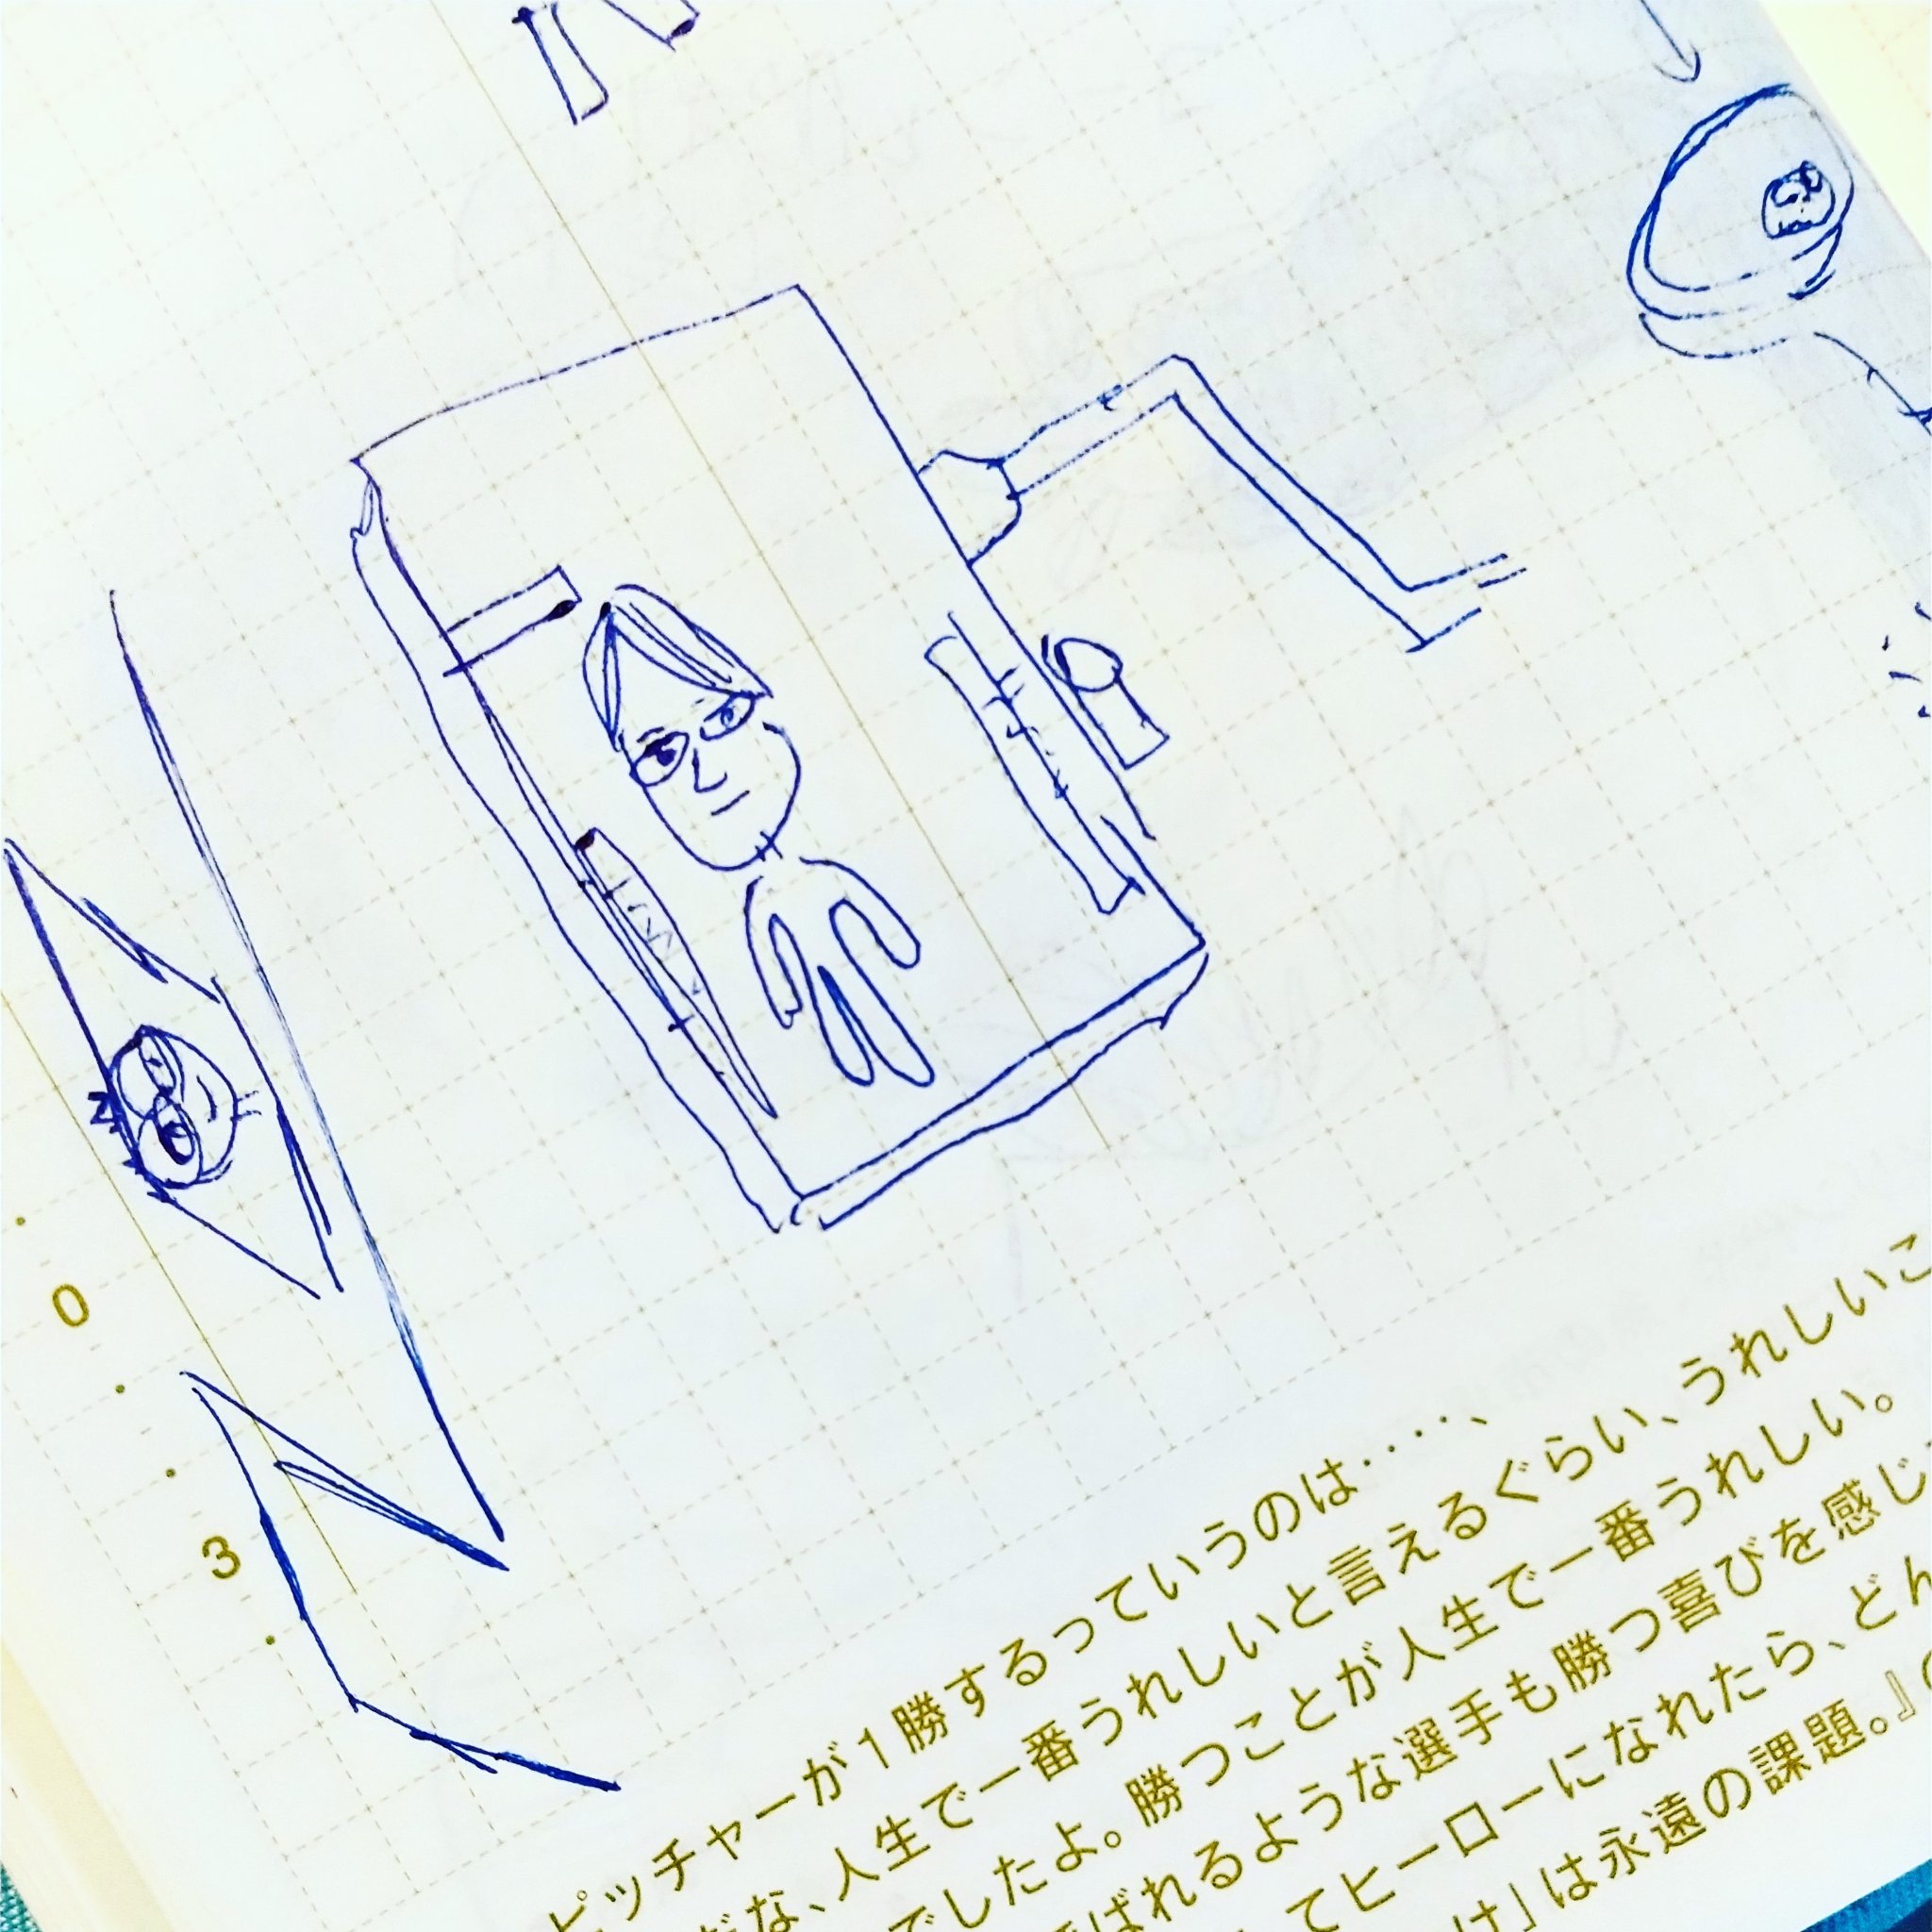 0
3
ピッチャーが1勝するっていうのは‥‥、
だな、人生で一番うれしいと言えるぐらい、うれしいこ
でしたよ。勝つことが人生で一番うれしい。
ばれるような選手も勝つ喜びを感じ
てヒーローになれたら、どん
け」は永遠の課題。』